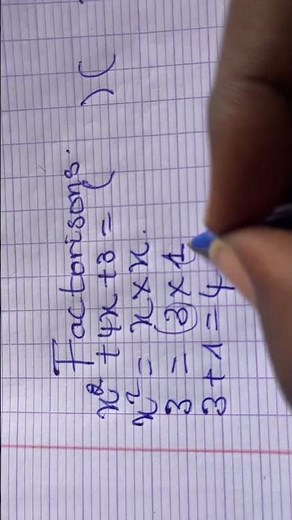 Factorisons.
x² + 4x + 3 = ( ) (
x² = x × x.
3 = 3 × 1
3 + 1 = 4